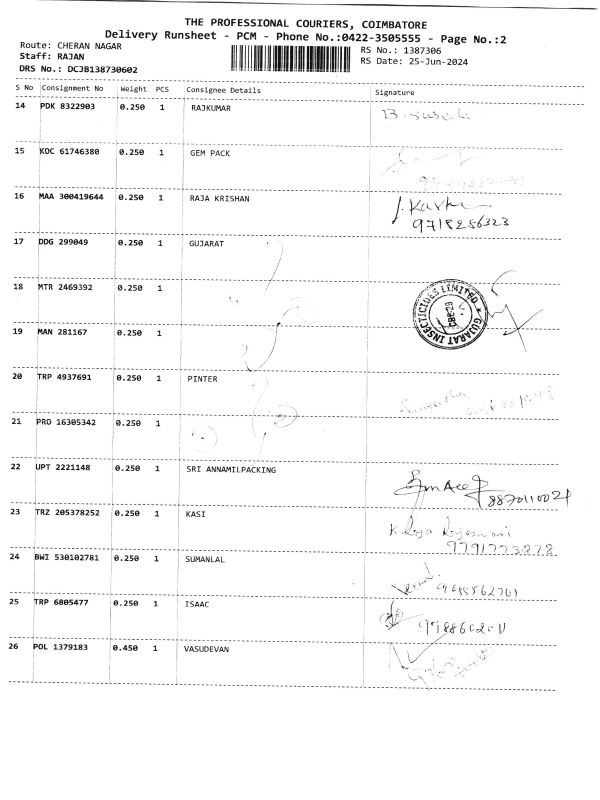 THE PROFESSIONAL COURIERS, COIMBATORE
Delivery Runsheet - PCM - Phone No.:0422-3505555 - Page No.:2
Route: CHERAN NAGAR RS No.: 1387306
Staff: RAJAN RS Date: 25-Jun-2024
DRS No.: DCJB138730602
S No Consignment No Weight PCS Consignee Details Signature
14 PDK 8322903 0.250 1 RAJKUMAR
15 KOC 61746380 0.250 1 GEM PACK
16 MAA 300419644 0.250 1 RAJA KRISHAN
9718286323
17 DDG 299049 0.250 1 GUJARAT
18 MTR 2469392 0.250 1
GUJARAT INSECTICIDES LIMITED
19 MAN 281167 0.250 1
20 TRP 4937691 0.250 1 PINTER
21 PRO 16305342 0.250 1
22 UPT 2221148 0.250 1 SRI ANNAMILPACKING
23 TRZ 205378252 0.250 1 KASI
24 BWI 530102781 0.250 1 SUMANLAL
25 TRP 6805477 0.250 1 ISAAC
26 POL 1379183 0.450 1 VASUDEVAN